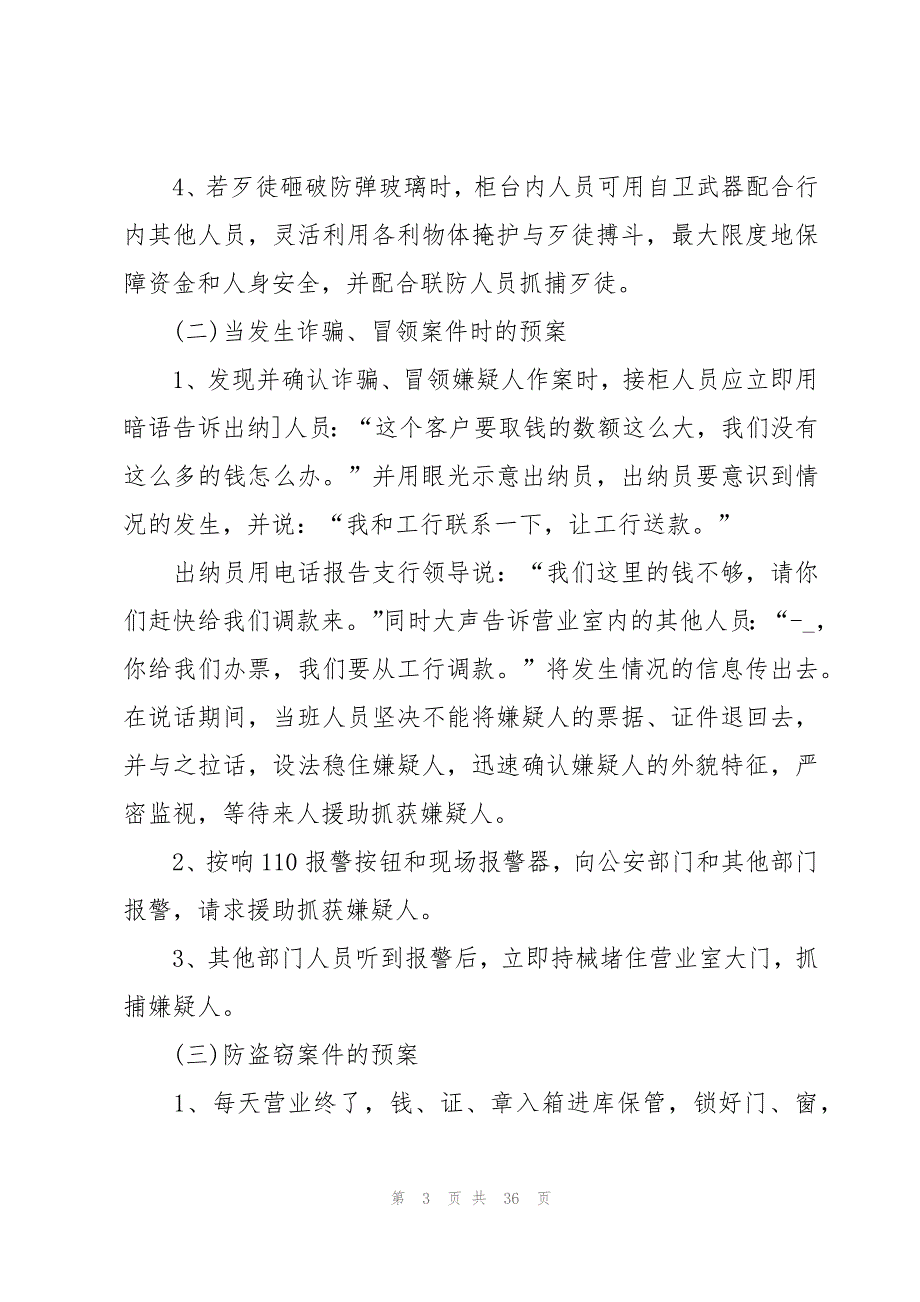 4、若歹徒砸破防弹玻璃时，柜台内人员可用自卫武器配合行
内其他人员，灵活利用各利物体掩护与歹徒搏斗，最大限度地保
障资金和人身安全，并配合联防人员抓捕歹徒。
(二)当发生诈骗、冒领案件时的预案
1、发现并确认诈骗、冒领嫌疑人作案时，接柜人员应立即用
暗语告诉出纳]人员：“这个客户要取钱的数额这么大，我们没有
这么多的钱怎么办。”并用眼光示意出纳员，出纳员要意识到情
况的发生，并说：“我和工行联系一下，让工行送款。”
出纳员用电话报告支行领导说：“我们这里的钱不够，请你
们赶快给我们调款来。”同时大声告诉营业室内的其他人员：“-_，
你给我们办票，我们要从工行调款。”将发生情况的信息传出去。
在说话期间，当班人员坚决不能将嫌疑人的票据、证件退回去，
并与之拉话，设法稳住嫌疑人，迅速确认嫌疑人的外貌特征，严
密监视，等待来人援助抓获嫌疑人。
2、按响 110 报警按钮和现场报警器，向公安部门和其他部门
报警，请求援助抓获嫌疑人。
3、其他部门人员听到报警后，立即持械堵住营业室大门，抓
捕嫌疑人。
(三)防盗窃案件的预案
1、每天营业终了，钱、证、章入箱进库保管，锁好门、窗，
第 3 页 共 36 页